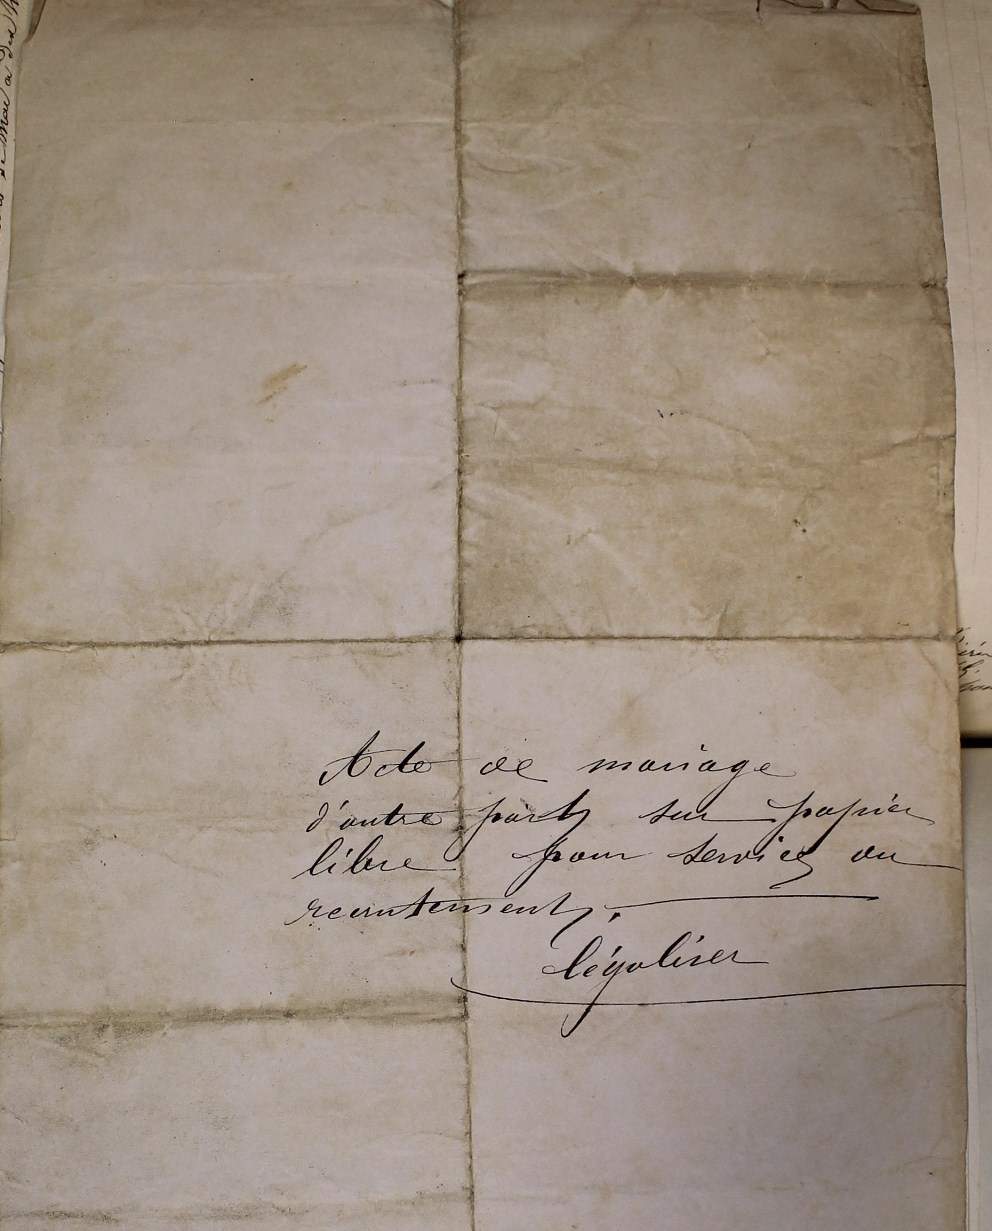 Acte de mariage
d'autre part sur papier
libre pour service au
recrutement.
légaliser